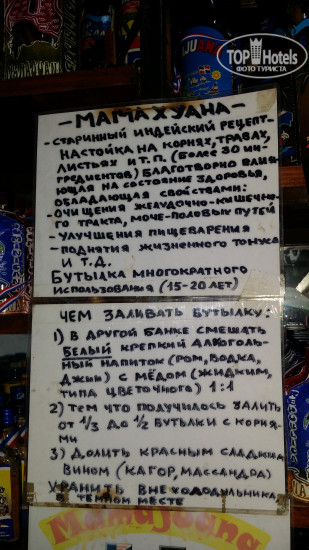 TOP Hotels
ФОТО ТУРИСТА
- МАМАХУАНА -
- СТАРИННЫЙ ИНДЕЙСКИЙ РЕЦЕПТ-
НАСТОЙКА НА КОРНЯХ, ТРАВАХ,
ЛИСТЬЯХ И Т.П. (БОЛЕЕ 30 ИН-
ГРЕДИЕНТОВ) БЛАГОТВОРНО ВЛИЯ-
ЮЩАЯ НА СОСТОЯНИЕ ЗДОРОВЬЯ,
ОБЛАДАЮЩАЯ СВОЙСТВАМИ:
- ОЧИЩЕНИЯ ЖЕЛУДОЧНО-КИШЕЧНО-
ГО ТРАКТА, МОЧЕ-ПОЛОВЫХ ПУТЕЙ
- УЛУЧШЕНИЯ ПИЩЕВАРЕНИЯ
- ПОДНЯТИЯ ЖИЗНЕННОГО ТОНУСА
И Т.Д.
БУТЫЛКА МНОГОКРАТНОГО
ИСПОЛЬЗОВАНИЯ (15-20 ЛЕТ)
ЧЕМ ЗАЛИВАТЬ БУТЫЛКУ:
1) В ДРУГОЙ БАНКЕ СМЕШАТЬ
БЕЛЫЙ КРЕПКИЙ АЛКОГОЛЬ-
НЫЙ НАПИТОК (РОМ, ВОДКА,
ДЖИН) С МЁДОМ (ЖИДКИМ,
ТИПА ЦВЕТОЧНОГО) 1:1
2) ТЕМ ЧТО ПОЛУЧИЛОСЬ ЗАЛИТЬ
ОТ 1/3 ДО 1/2 БУТЫЛКИ С КОРНЯ-
МИ
3) ДОЛИТЬ КРАСНЫМ СЛАДКИМ
ВИНОМ (КАГОР, МАССАНДРА)
ХРАНИТЬ ВНЕ ХОЛОДИЛЬНИКА,
В ТЕМНОМ МЕСТЕ
MamaJuana